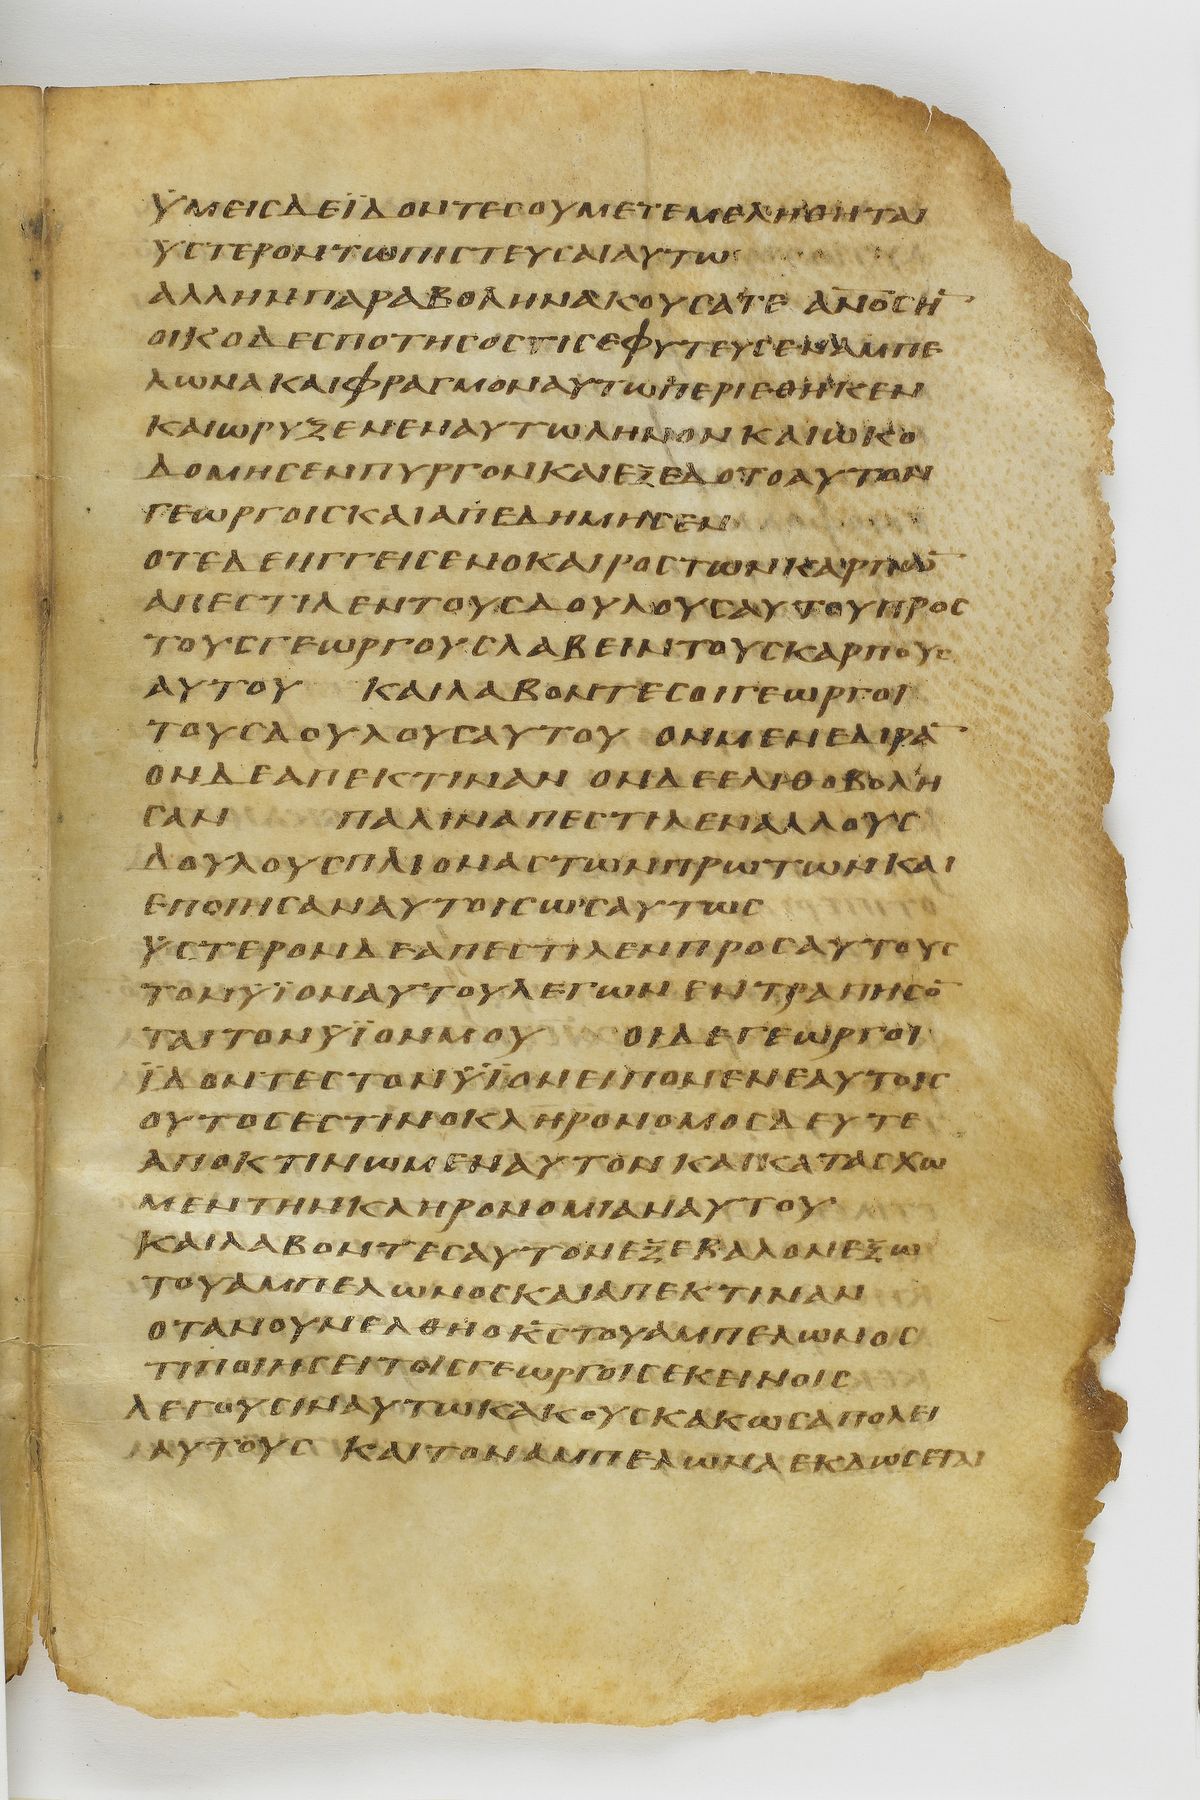 ϔΜΕΙCΔΕΪΔΟΝΤΕCΟΥΜΕΤΕΜΕΛΗΘΗΤΑΙ
ΥCΤΕΡΟΝΤΩΠΙCΤΕΥCΑΙΑΥΤΩ
ΑΛΛΗΝΠΑΡΑΒΟΛΗΝΑΚΟΥCΑΤΕ ΑΝΟCΗ̅
ΟΙΚΟΔΕCΠΟΤΗCΟCΤΙCΕΦΥΤΕΥCΕΝΑΜΠΕ
ΛΩΝΑΚΑΙΦΡΑΓΜΟΝΑΥΤΩΠΕΡΙΕΘΗΚΕΝ
ΚΑΙΩΡΥΞΕΝΕΝΑΥΤΩΛΗΝΟΝΚΑΙΩΚΟ
ΔΟΜΗCΕΝΠΥΡΓΟΝΚΑΙΕΞΕΔΟΤΟΑΥΤΟΝ
ΓΕΩΡΓΟΙCΚΑΙΑΠΕΔΗΜΗCΕΝ
ΟΤΕΔΕΗΓΓΕΙCΕΝΟΚΑΙΡΟCΤΩΝΚΑΡΠΩ̅
ΑΠΕCΤΙΛΕΝΤΟΥCΔΟΥΛΟΥCΑΥΤΟΥΠΡΟC
ΤΟΥCΓΕΩΡΓΟΥCΛΑΒΕΙΝΤΟΥCΚΑΡΠΟΥC
ΑΥΤΟΥ ΚΑΙΛΑΒΟΝΤΕCΟΙΓΕΩΡΓΟΙ
ΤΟΥCΔΟΥΛΟΥCΑΥΤΟΥ ΟΝΜΕΝΕΔΙΡΑ̅
ΟΝΔΕΑΠΕΚΤΙΝΑΝ ΟΝΔΕΕΛΙΘΟΒΟΛΗ
CΑΝ ΠΑΛΙΝΑΠΕCΤΙΛΕΝΑΛΛΟΥC
ΔΟΥΛΟΥCΠΛΙΟΝΑCΤΩΝΠΡΩΤΩΝΚΑΙ
ΕΠΟΙΗCΑΝΑΥΤΟΙCΩCΑΥΤΩC
ϔCΤΕΡΟΝΔΕΑΠΕCΤΙΛΕΝΠΡΟCΑΥΤΟΥC
ΤΟΝΥΪΟΝΑΥΤΟΥΛΕΓΩΝ ΕΝΤΡΑΠΗCΟ̅
ΤΑΙΤΟΝΥΪΟΝΜΟΥ ΟΙΔΕΓΕΩΡΓΟΙ
ΪΔΟΝΤΕCΤΟΝϔΪΟΝΕΙΠΟΝΕΝΕΑΥΤΟΙC
ΟΥΤΟCΕCΤΙΝΟΚΛΗΡΟΝΟΜΟCΔΕΥΤΕ
ΑΠΟΚΤΙΝΩΜΕΝΑΥΤΟΝΚΑΙΚΑΤΑCΧΩ
ΜΕΝΤΗΝΚΛΗΡΟΝΟΜΙΑΝΑΥΤΟΥ
ΚΑΙΛΑΒΟΝΤΕCΑΥΤΟΝΕΞΕΒΑΛΟΝΕΞΩ
ΤΟΥΑΜΠΕΛΩΝΟCΚΑΙΑΠΕΚΤΙΝΑΝ
ΟΤΑΝΟΥΝΕΛΘΗΟΚ̅C̅ΤΟΥΑΜΠΕΛΩΝΟC
ΤΙΠΟΙΗCΕΙΤΟΙCΓΕΩΡΓΟΙCΕΚΕΙΝΟΙC
ΛΕΓΟΥCΙΝΑΥΤΩΚΑΚΟΥCΚΑΚΩCΑΠΟΛΕΙ
ΑΥΤΟΥC ΚΑΙΤΟΝΑΜΠΕΛΩΝΑΕΚΔΩCΕΤΑΙ